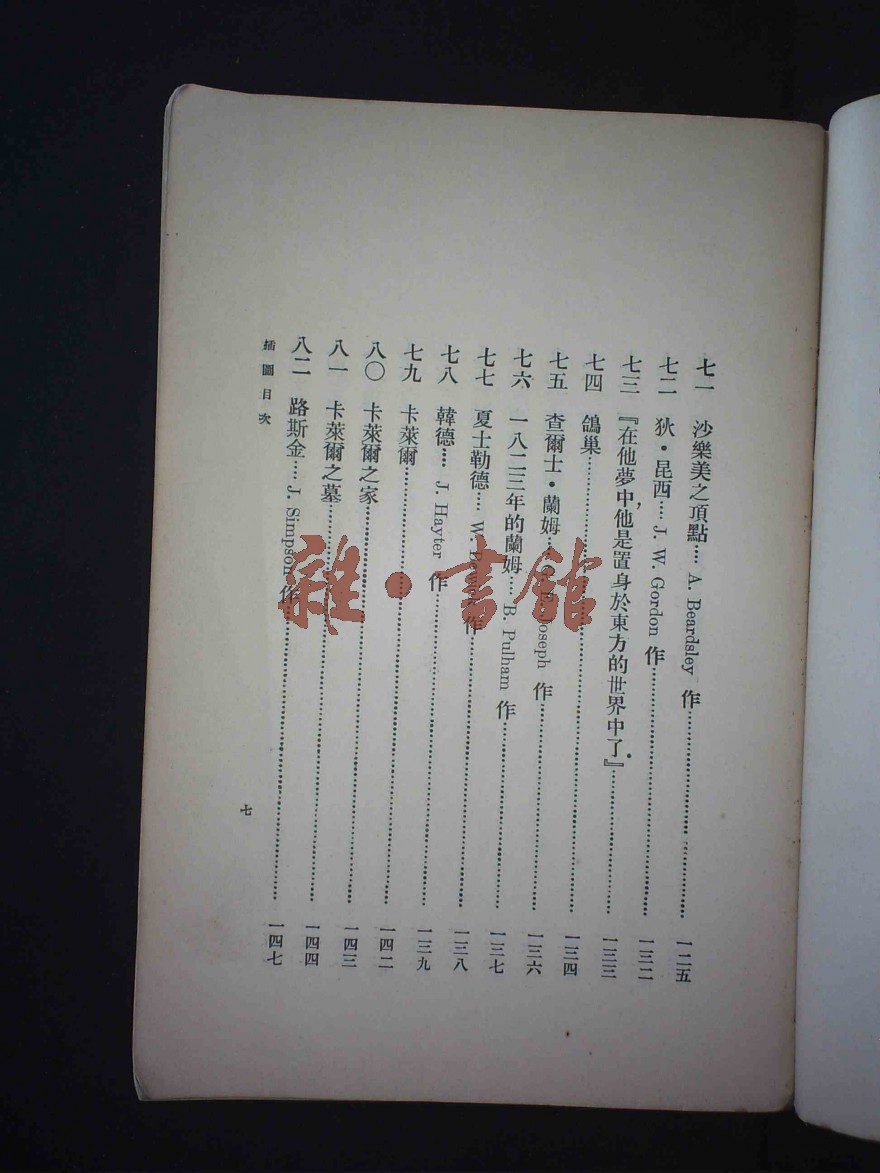 七一 沙樂美之頂點…… A. Beardsley 作…… 一二五
七二 狄・昆西…… J. W. Gordon 作…… 一三二
七三 『在他夢中,他是置身於東方的世界中了。』…… 一三三
七四 鴿巢…… 一三四
七五 查爾士・蘭姆…… Joseph 作…… 一三六
七六 一八二三年的蘭姆…… B. Pulham 作…… 一三七
七七 夏士勒德…… W. 作…… 一三八
七八 韓德…… J. Hayter 作…… 一三九
七九 卡萊爾…… 一四二
八〇 卡萊爾之家…… 一四三
八一 卡萊爾之墓…… 一四四
八二 路斯金…… J. Simpson 作…… 一四七
插圖目次
七
雜・書館